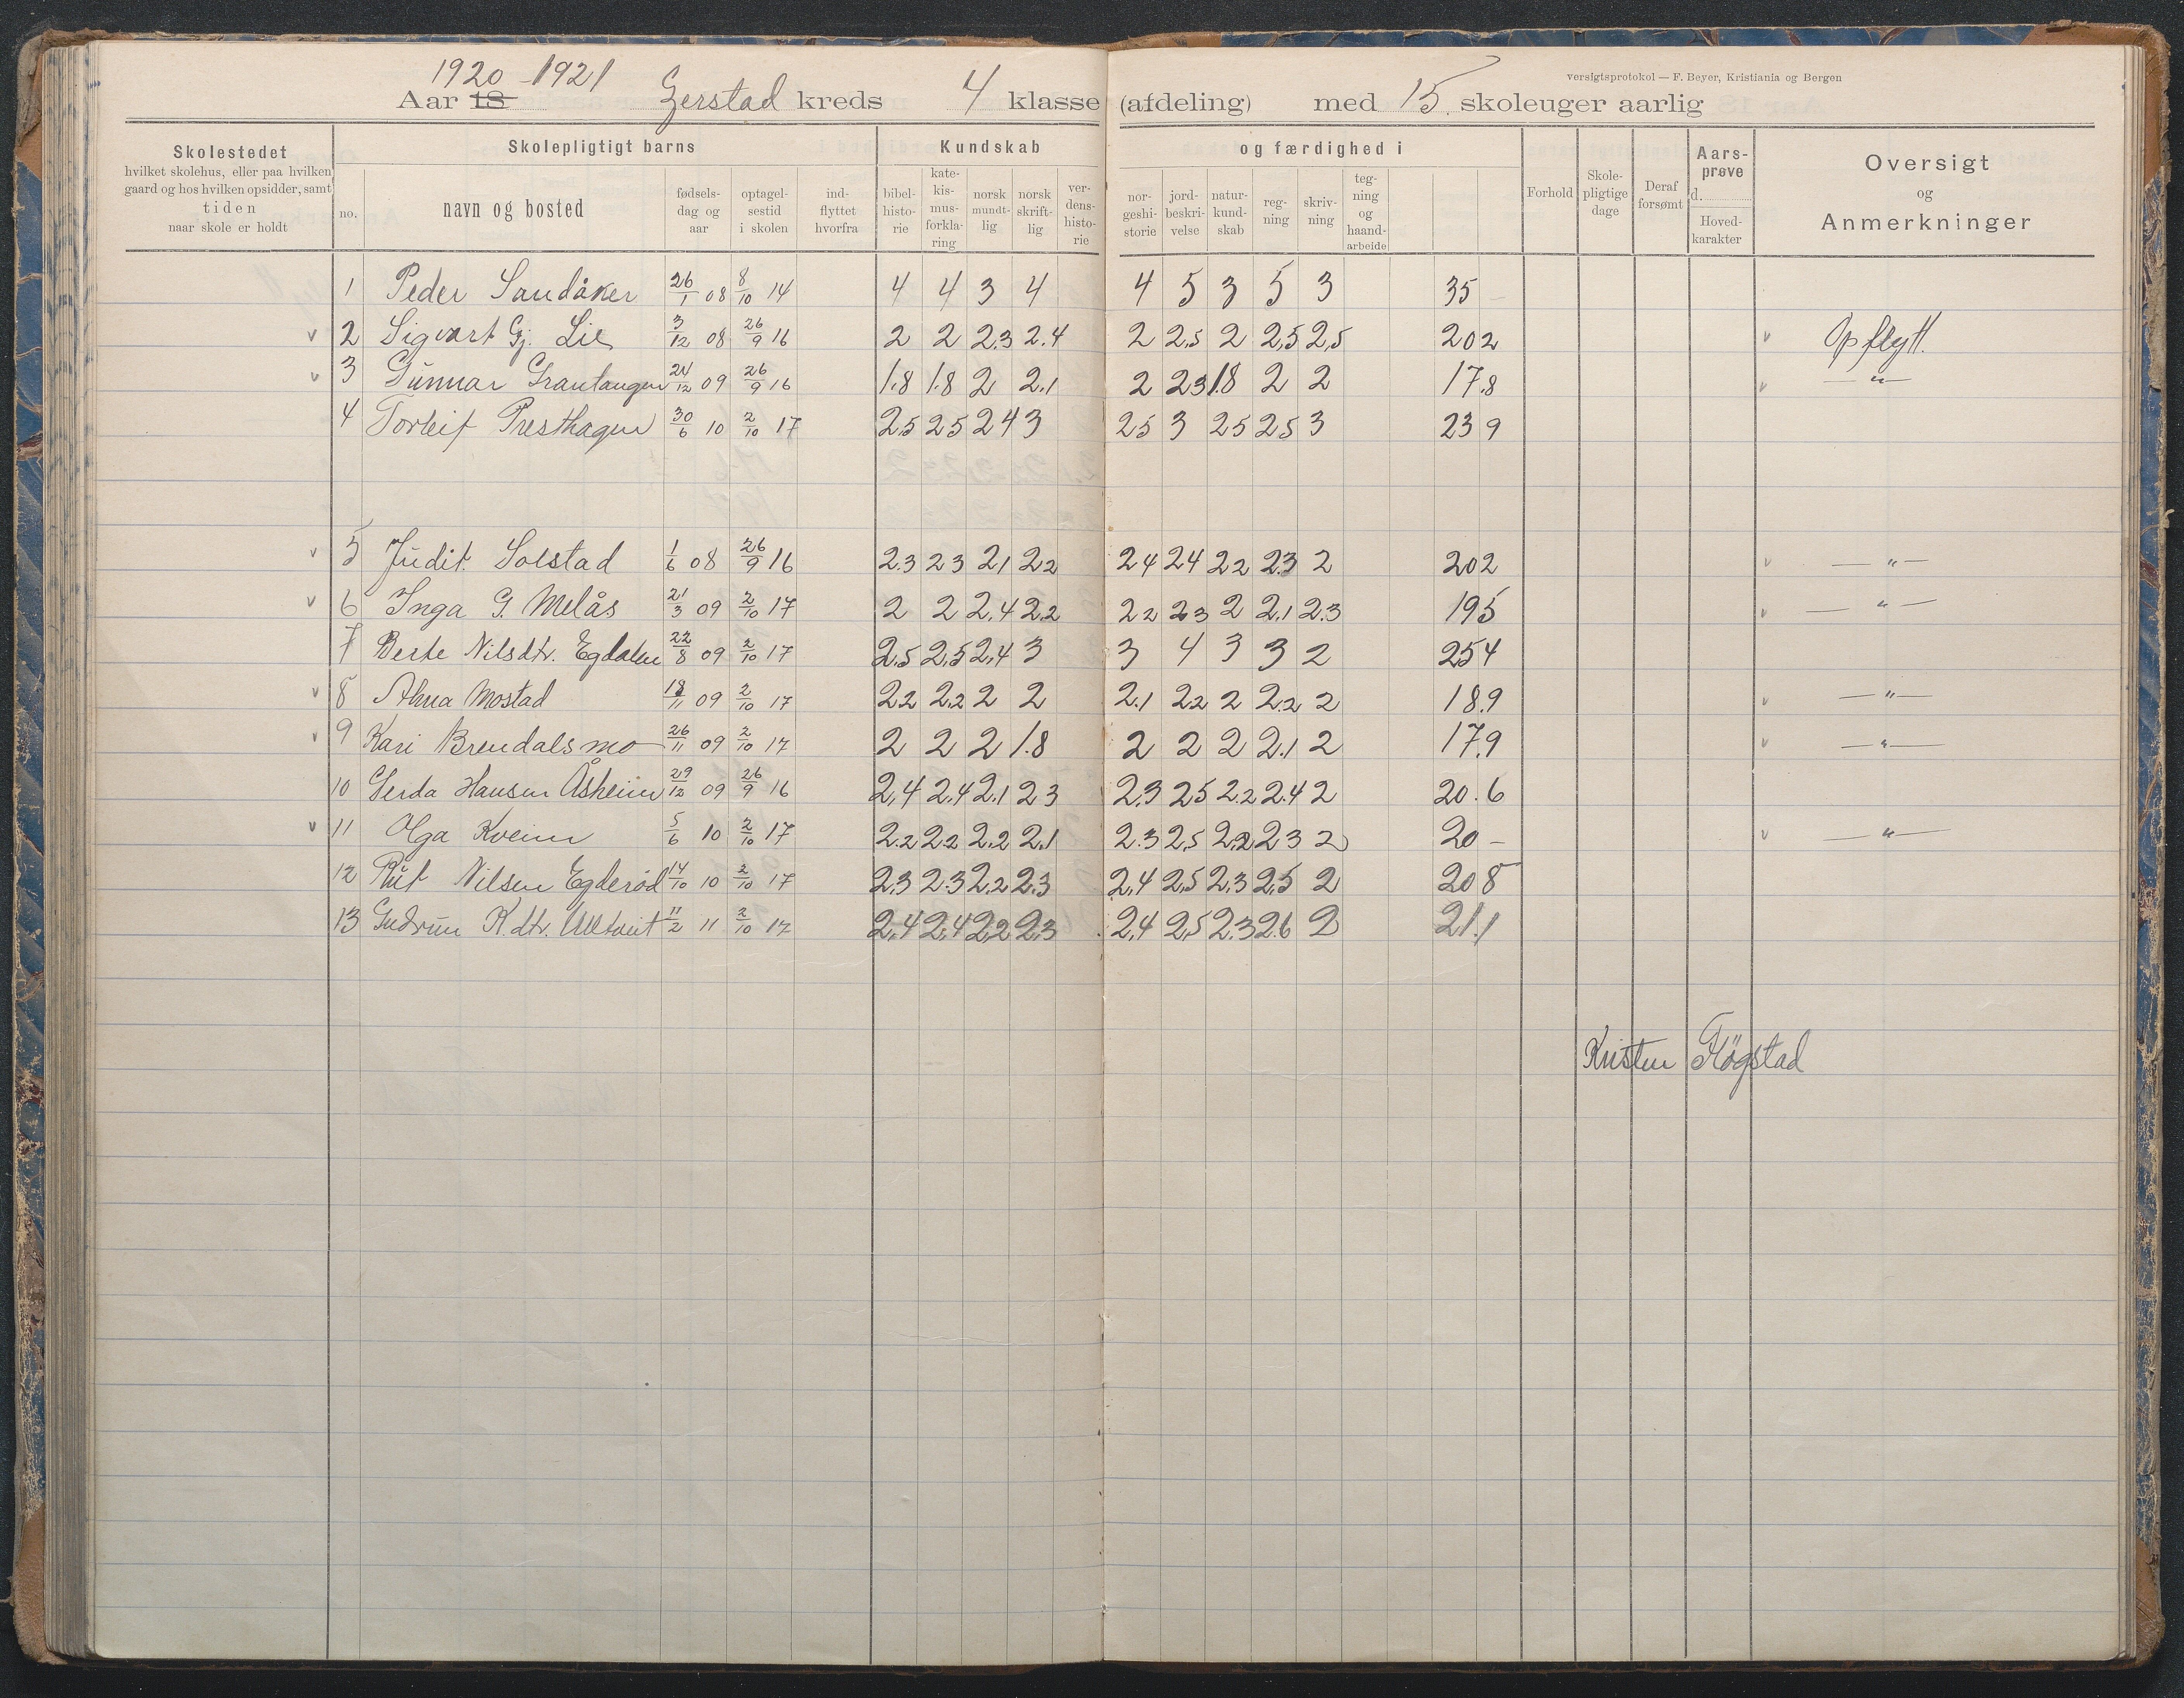 versigtsprotokol — F. Beyer, Kristiania og Bergen
1920-1921
Aar 18 Gerstad kreds 4 klasse (afdeling) med 15 skoleuger aarlig
Skolestedet hvilket skolehus, eller paa hvilken gaard og hos hvilken opsidder, samt tiden naar skole er holdt
Skolepligtigt barns
no. navn og bosted fødselsdag og aar optagelsestid i skolen indflyttet hvorfra
Kundskab og færdighed i
bibelhistorie katekismusforklaring norsk mundtlig norsk skriftlig verdenshistorie norgeshistorie jordbeskrivelse naturkundskab regning skrivning tegning og haandarbeide
Forhold Skolepligtige dage Deraf forsømt Aarsprøve d. Hovedkarakter
Oversigt og Anmerkninger
1 Peder Sandåker 26/1 08 8/10 14 4 4 3 4 4 5 3 5 3 35 –
v 2 Sigvart Gj. Lie 3/12 08 26/9 16 2 2 2.3 2.4 2 2,5 2 2,5 2,5 202 v Opflytt.
v 3 Gunnar Grantangen 24/12 09 26/9 16 1.8 1.8 2 2.1 2 23 1.8 2 2 17.8 v — " —
4 Torleif Presthagen 30/6 10 2/10 17 2,5 25 24 3 25 3 25 25 3 239
v 5 Judit Solstad 1/6 08 26/9 16 2.3 23 21 22 24 24 22 23 2 202 v — " —
v 6 Inga G. Melås 21/3 09 2/10 17 2 2 2.4 2.2 22 23 2 2.1 2.3 195 v — " —
7 Berte Nilsdtr. Egdalen 22/8 09 2/10 17 2,5 2,5 2,4 3 3 4 3 3 2 254
v 8 Anna Mostad 18/11 09 2/10 17 22 2.2 2 2 2.1 22 2 2.2 2 18.9 v — " —
v 9 Kari Brendalsmo 26/11 09 2/10 17 2 2 2 1.8 2 2 2 2.1 2 17.9 v — " —
10 Gerda Hansen Åsheim 29/12 09 26/9 16 2,4 2.4 2.1 23 2.3 25 2.2 2.4 2 20.6
v 11 Olga Kveim 5/6 10 2/10 17 2.2 2.2 2,2 2,1 2.3 2,5 2,2 23 2 20 – v — " —
12 Rut Nilsen Egderød 14/10 10 2/10 17 2,3 2.3 2,2 2.3 2,4 2,5 2,3 2,5 2 208
13 Gudrun K.dtr. Ulltveit 11/2 11 2/10 17 2,4 2,4 2,2 2,3 2,4 2,5 2.3 2.6 2 21.1
Kristen Fløgstad